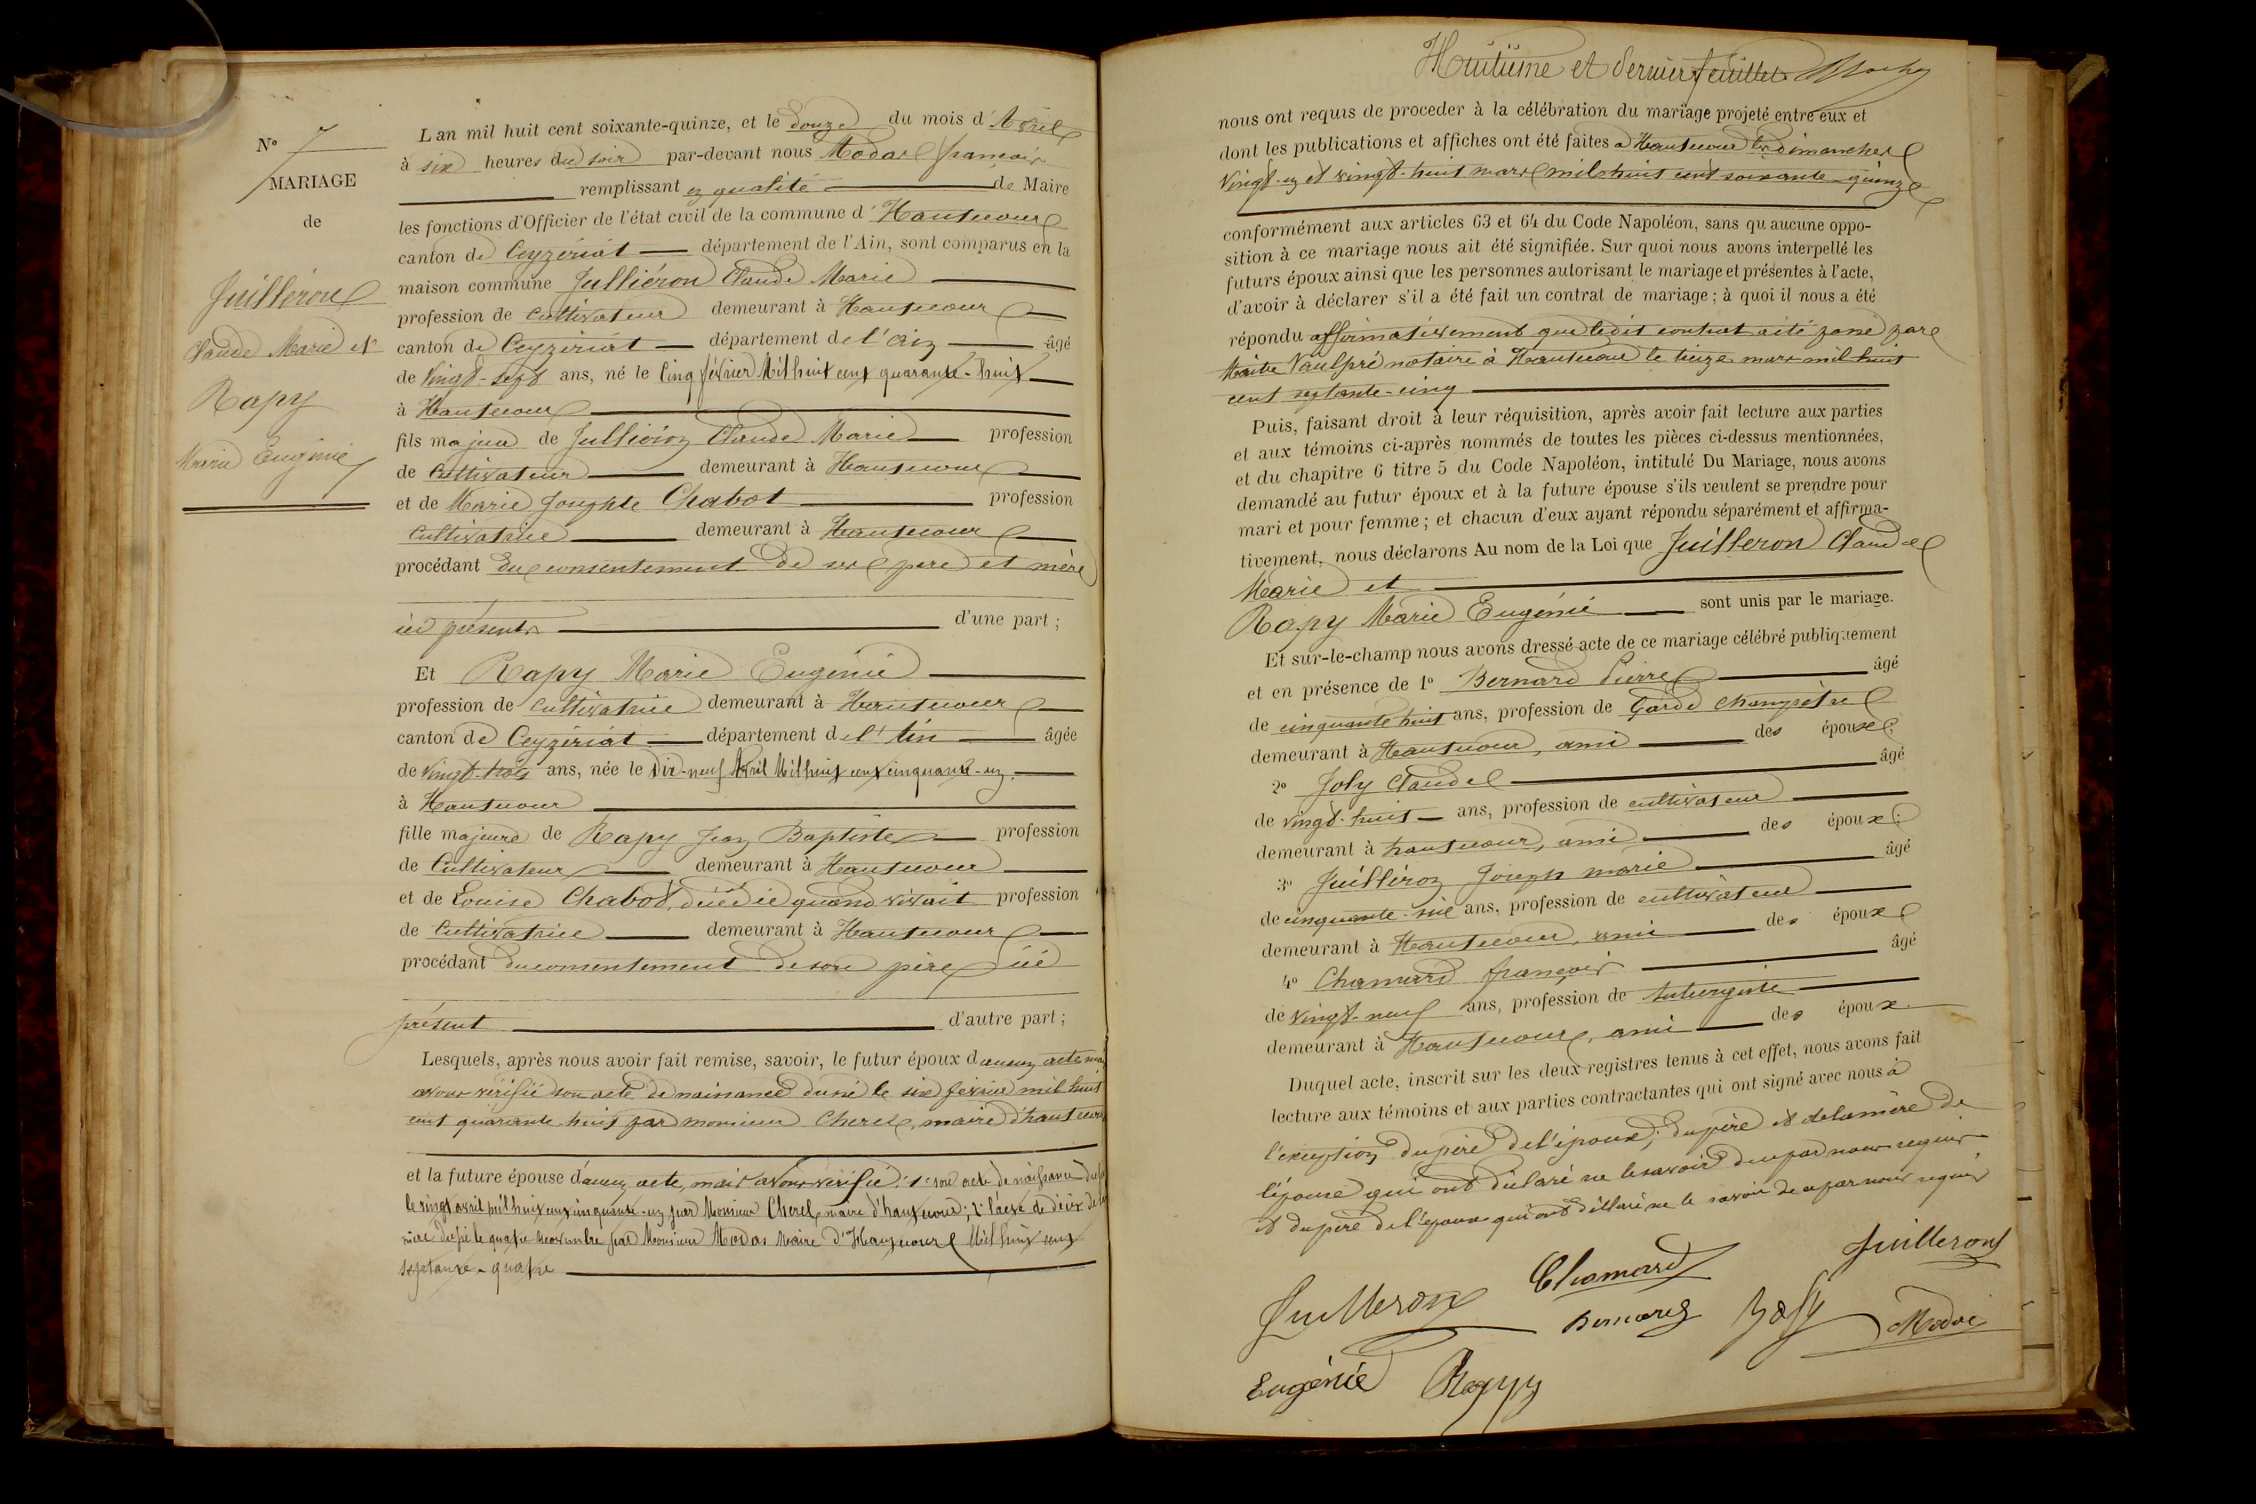 N° 7
MARIAGE
de
Juilléron
Claude Marie et
Rapy
Marie Eugénie
L'an mil huit cent soixante-quinze, et le douze du mois d'Avril
à six heures du soir par-devant nous Modas françois
remplissant en qualité de Maire
les fonctions d'Officier de l'état civil de la commune d'Hautecour
canton de Ceyzériat département de l'Ain, sont comparus en la
maison commune Julliéron Claude Marie
profession de cultivateur demeurant à Hautecour
canton de Ceyzériat département de l'ain âgé
de vingt-sept ans, né le cinq février Mil huit cent quarante-huit
à Hautecour
fils majeur de Julliéron Claude Marie profession
de cultivateur demeurant à Hautecour
et de Marie Josephte Chabot profession
cultivatrice demeurant à Hautecour
procédant du consentement de ses père et mère
ici présents d'une part ;
Et Rapy Marie Eugénie
profession de cultivatrice demeurant à Hautecour
canton de Ceyzériat département de l'Ain âgée
de vingt-trois ans, née le Dix-neuf Avril Mil huit cent cinquante-un
à Hautecour
fille majeure de Rapy Jean Baptiste profession
de Cultivateur demeurant à Hautecour
et de Louise Chabot, décédée quand vivait profession
de Cultivatrice demeurant à Hautecour
procédant du consentement de son père ici
présent d'autre part ;
Lesquels, après nous avoir fait remise, savoir, le futur époux d'aucun acte mais
avons vérifié son acte de naissance dressé le six février mil huit
cent quarante-huit par monsieur Cherel, maire d'hautecour
et la future épouse d'aucun acte, mais avons vérifié : 1° son acte de naissance
le vingt avril mil huit cent cinquante-un par Monsieur Cherel, maire d'hautecour ; 2° l'acte de décès de sa
mère dressé le quatre novembre par Monsieur Modas Maire d'Hautecour Mil huit cent
septante-quatre
Huitième et dernier feuillet
nous ont requis de procéder à la célébration du mariage projeté entre eux et
dont les publications et affiches ont été faites à Hautecour les dimanches
vingt-un et vingt-huit mars mil huit cent soixante-quinze
conformément aux articles 63 et 64 du Code Napoléon, sans qu'aucune oppo-
sition à ce mariage nous ait été signifiée. Sur quoi nous avons interpellé les
futurs époux ainsi que les personnes autorisant le mariage et présentes à l'acte,
d'avoir à déclarer s'il a été fait un contrat de mariage ; à quoi il nous a été
répondu affirmativement que ledit contrat a été passé par
Maître Vaulpré notaire à Hautecour le treize mars mil huit
cent septante-cinq
Puis, faisant droit à leur réquisition, après avoir fait lecture aux parties
et aux témoins ci-après nommés de toutes les pièces ci-dessus mentionnées,
et du chapitre 6 titre 5 du Code Napoléon, intitulé Du Mariage, nous avons
demandé au futur époux et à la future épouse s'ils veulent se prendre pour
mari et pour femme ; et chacun d'eux ayant répondu séparément et affirma-
tivement, nous déclarons Au nom de la Loi que Juilleron Claude
Marie et
Rapy Marie Eugénie sont unis par le mariage.
Et sur-le-champ nous avons dressé acte de ce mariage célébré publiquement
et en présence de 1° Bernard Pierre âgé
de cinquante huit ans, profession de Garde champêtre
demeurant à Hautecour, ami des époux ;
2° Joly Claude âgé
de vingt-huit ans, profession de cultivateur
demeurant à hautecour, ami des époux ;
3° Juilléron Joseph marie âgé
de cinquante-six ans, profession de cultivateur
demeurant à Hautecour, ami des époux
4° Chamard françois âgé
de vingt-neuf ans, profession de Aubergiste
demeurant à Hautecour, ami des époux
Duquel acte, inscrit sur les deux registres tenus à cet effet, nous avons fait
lecture aux témoins et aux parties contractantes qui ont signé avec nous à
l'exception du père de l'époux ; du père et de la mère de
l'épouse qui ont déclaré ne le savoir de ce par nous requis
et du père de l'époux qui ont déclaré ne le savoir de ce par nous requis
Juilleron Chamard Juilleron
Bernard Joly Modas
Eugénie Rapy